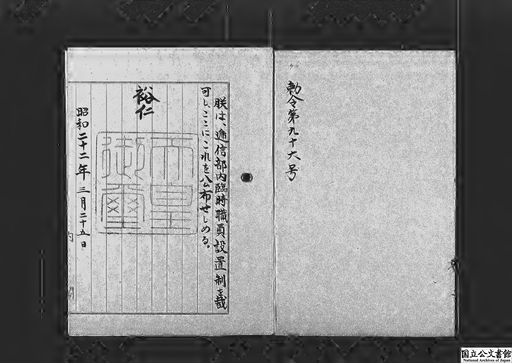 勅令第九十六号
朕は、逓信部内臨時職員設置制を裁
可し、ここにこれを公布せしめる。
裕仁
天皇
御璽
昭和二十二年三月二十五日
内閣
国立公文書館
National Archives of Japan